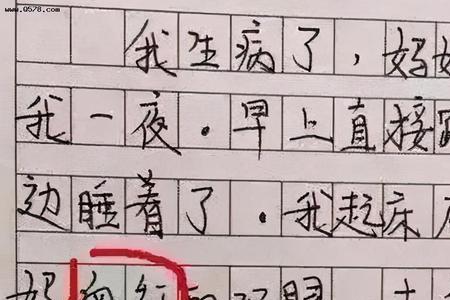 www.0578.com
我生病了，妈妈
我一夜.早上直接
边睡着了.我起床
妈